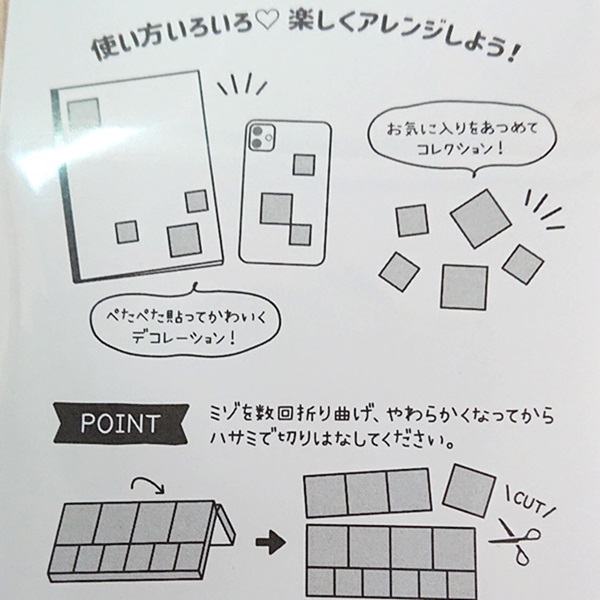 使い方いろいろ♡ 楽しくアレンジしよう！
お気に入りをあつめて
コレクション！
ぺたぺた貼ってかわいく
デコレーション！
POINT
ミゾを数回折り曲げ、やわらかくなってから
ハサミで切りはなしてください。
CUT